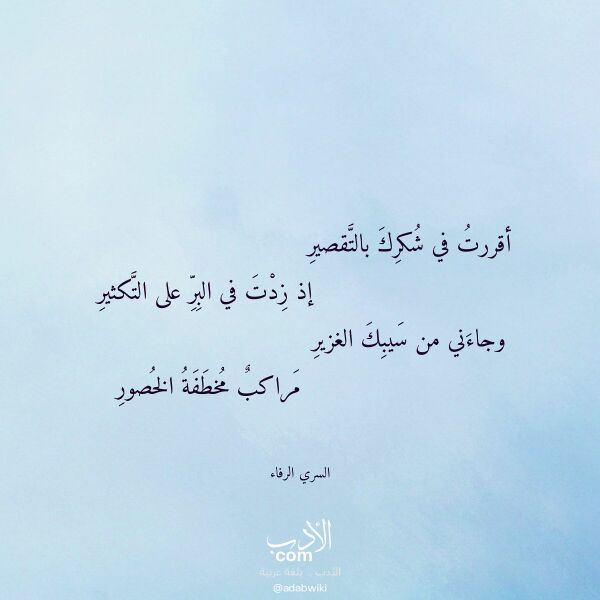 أقررتُ في شُكرِكَ بالتَّقصيرِ
إذ زِدْتَ في البِرِّ على التَّكثيرِ
وجاءَني من سَيبِكَ الغزيرِ
مَراكبٌ مُخطَفَةُ الخُصورِ
السري الرفاء
الأدب
com
الأدب .. بلغة عربية
@adabwiki